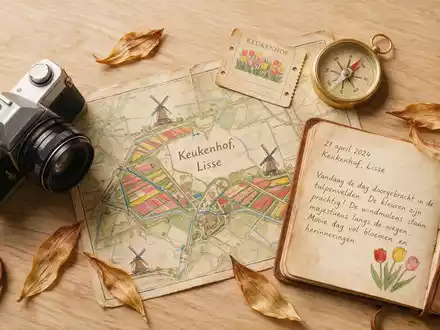 KEUKENHOF
Keukenhof,
Lisse
21 april 2024
Keukenhof, Lisse
Vandaag de dag doorgebracht in de
tulpenvelden. De kleuren zijn
prachtig! De windmolens staan
majestueus langs de wegen.
Mooie dag vol bloemen en
herinneringen